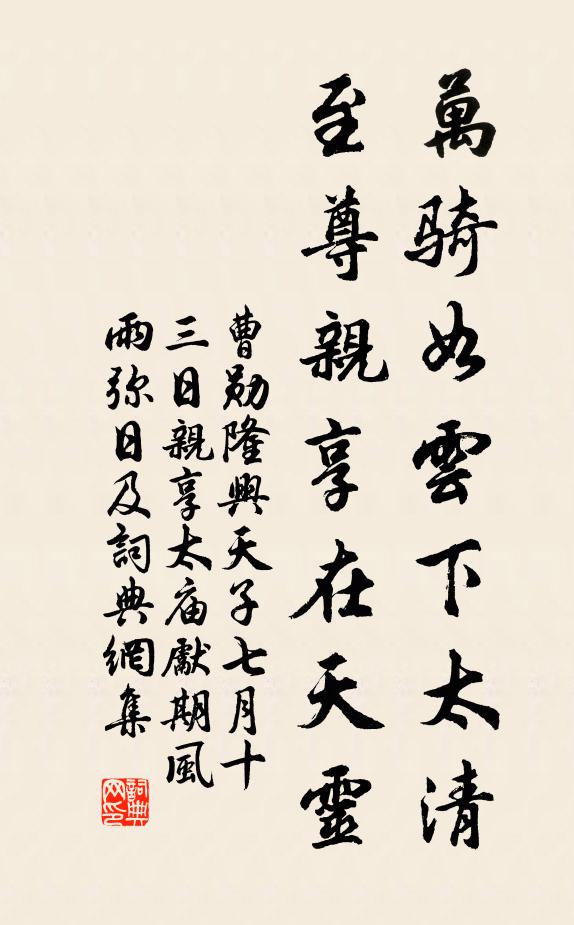 萬騎如雲下太清
至尊親享在天靈
曹勛隆興天子七月十
三日親享太庙獻期風
雨弥日及詞典網集
詞典网印